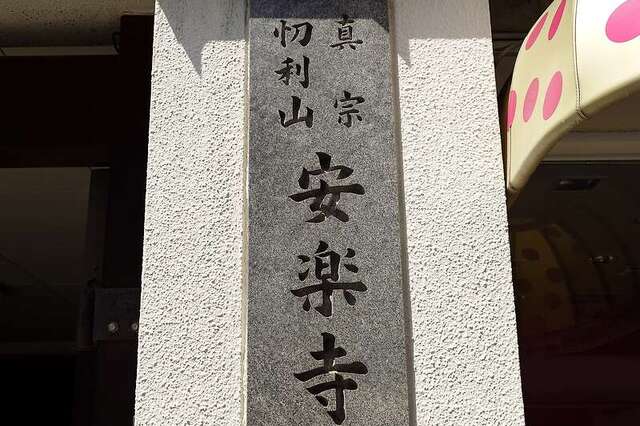 真宗
忉利山
安楽寺